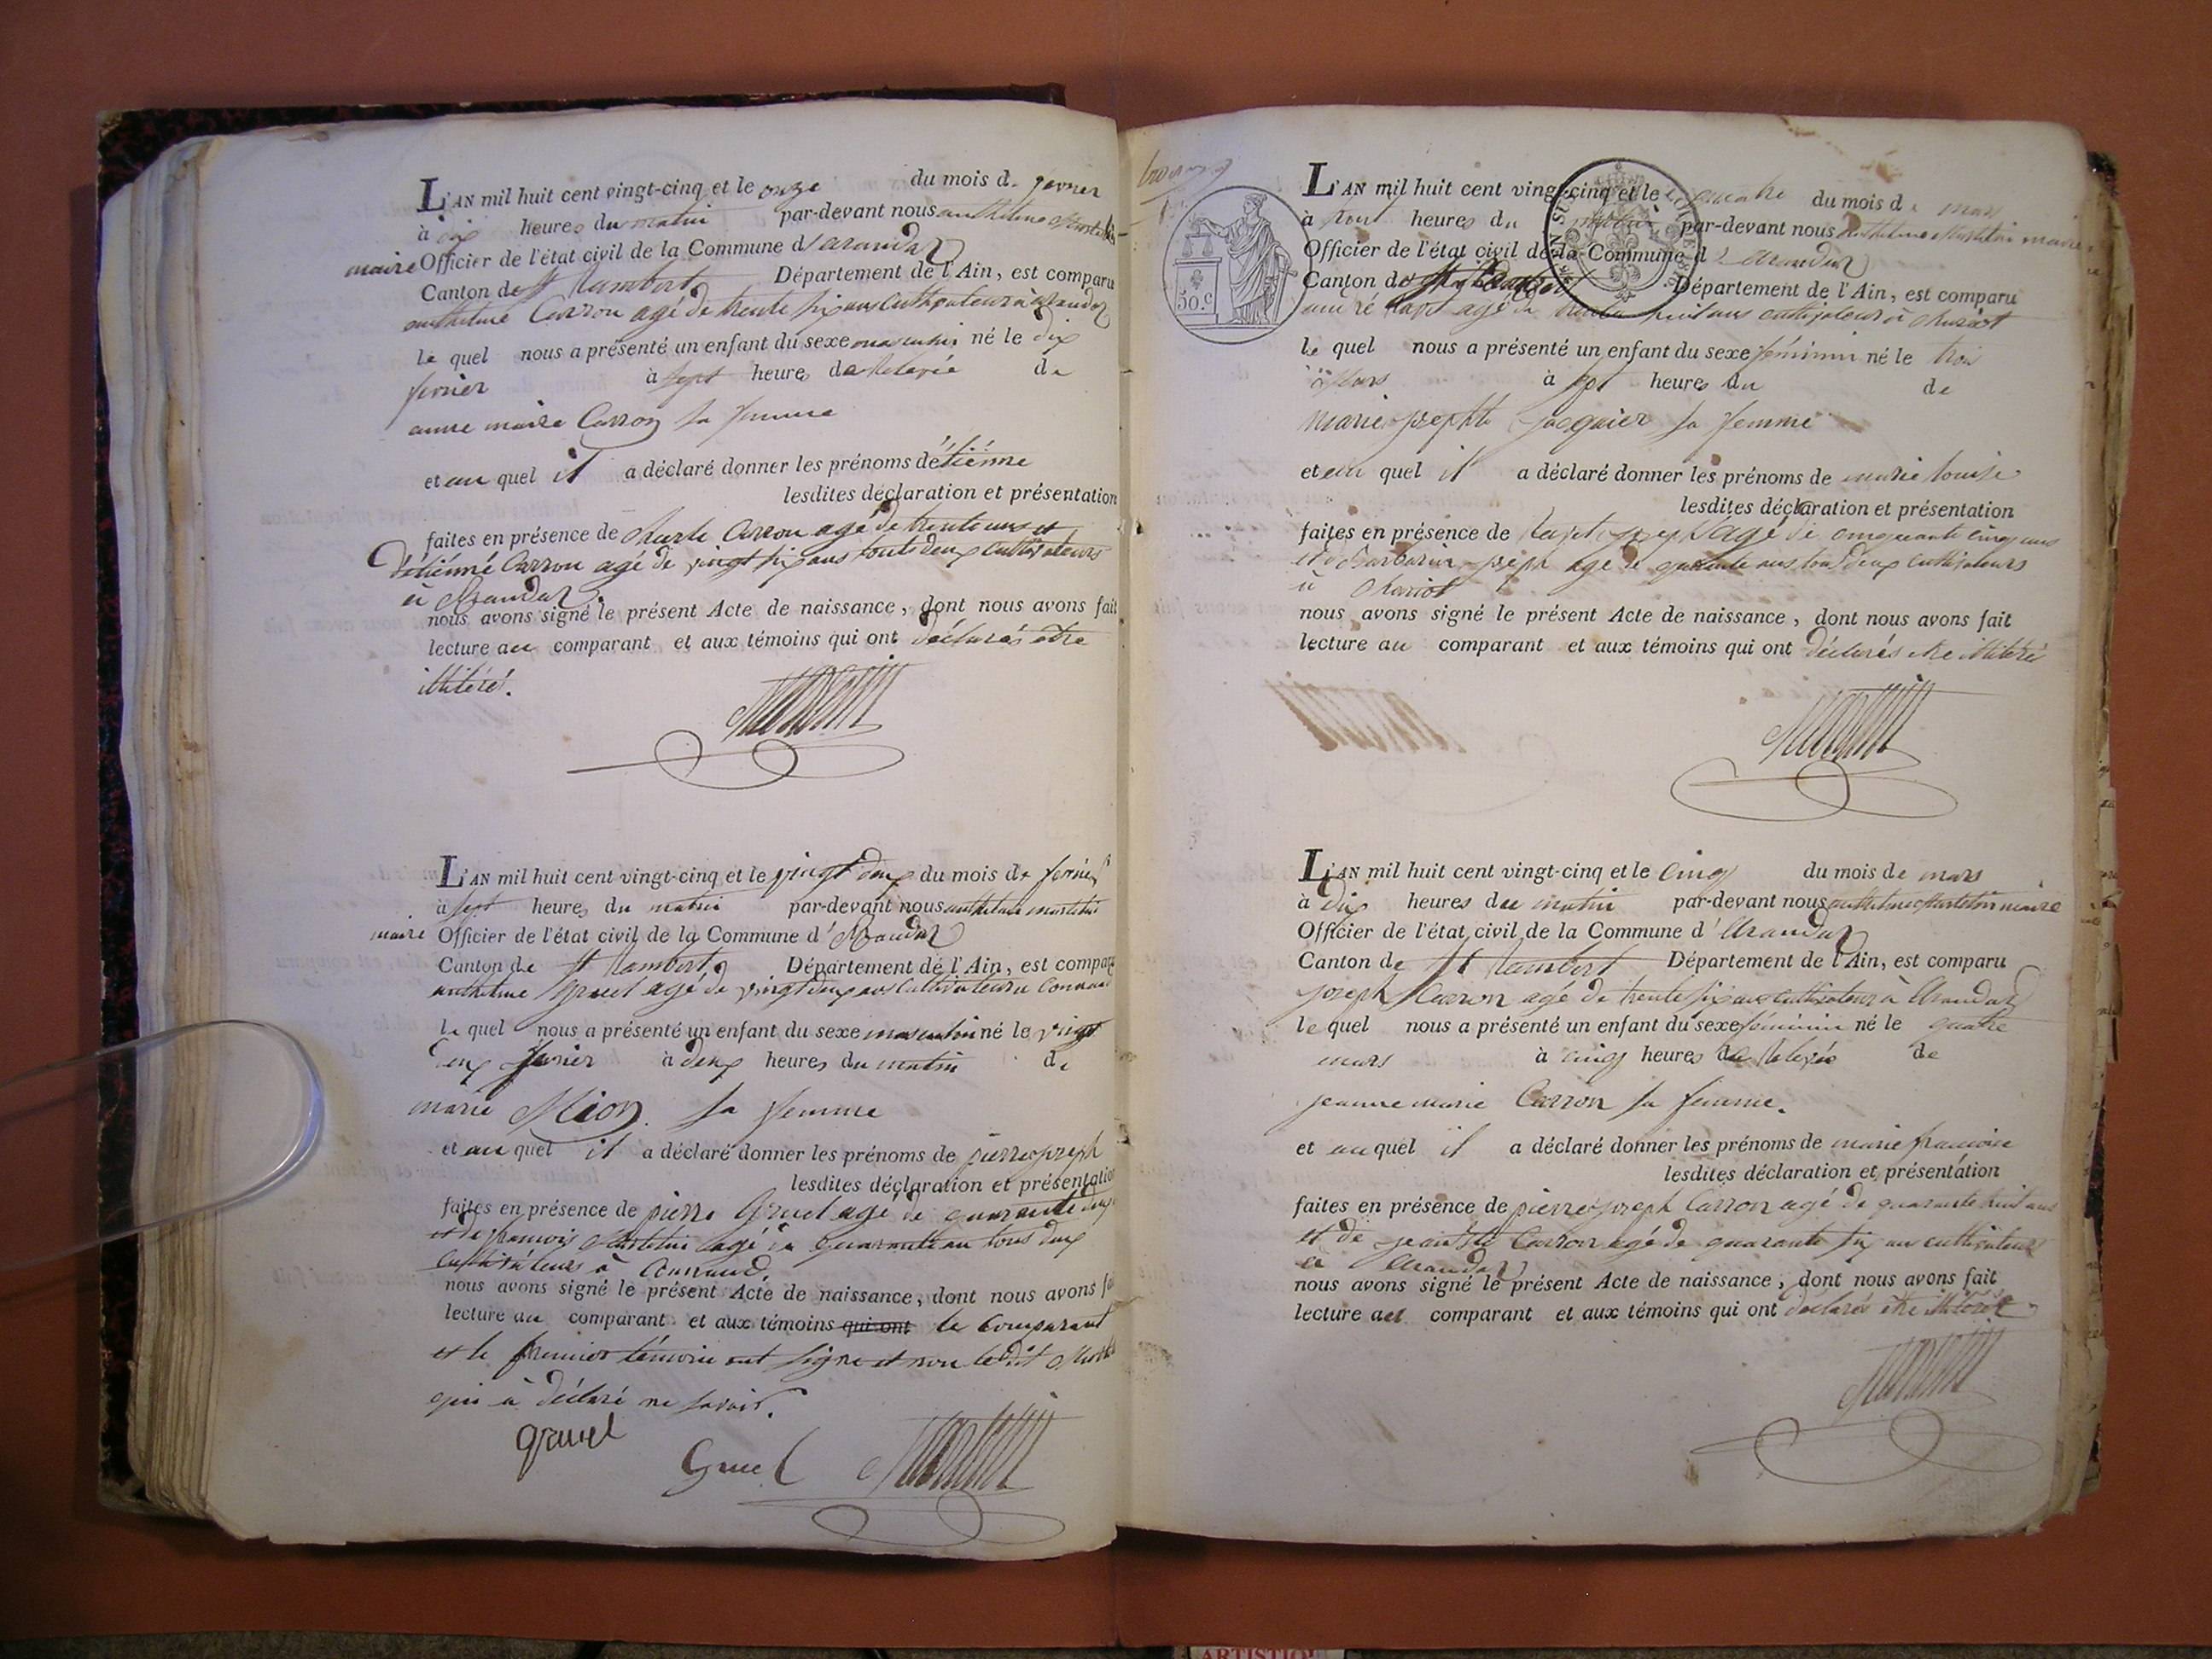 L'AN mil huit cent vingt-cinq et le onze du mois de fevrier
à dix heures du matin par-devant nous anthelme Martelin
maire Officier de l'état civil de la Commune d'arandaz
Canton de St Rambert Département de l'Ain, est comparu
anthelme Carron agé de trente six ans Cultivateur à arandaz
le quel nous a présenté un enfant du sexe masculin né le dix
fevrier à sept heures de Relevée de
anne marie Carron sa femme
et au quel il a déclaré donner les prénoms d'étiénne
lesdites déclaration et présentation
faites en présence de Carron agé de trente ans et
d'étiénné Carron agé de vingt six ans touts deux cultivateurs
à Arandaz
nous avons signé le présent Acte de naissance, dont nous avons fait
lecture au comparant et aux témoins qui ont déclarés être
illitéré.
L'AN mil huit cent vingt-cinq et le vingt deux du mois de fevrier
à sept heures du matin par-devant nous anthelme martelin
maire Officier de l'état civil de la Commune d'Arandaz
Canton de St Rambert Département de l'Ain, est comparu
anthelme Gruel agé de vingt deux ans Cultivateur a Conand
le quel nous a présenté un enfant du sexe masculin né le vingt
deux fevrier à deux heures du matin de
marie Mion sa femme
et au quel il a déclaré donner les prénoms de pierre joseph
lesdites déclaration et présentation
faites en présence de pierre Gruel agé de quarante deux
et de francois Martelin agé de quarante an tous deux
cultivateurs à Conand.
nous avons signé le présent Acte de naissance, dont nous avons fait
lecture au comparant et aux témoins qui ont le Comparant
et le premier témoin ont signe et non le dit
qui à déclaré ne savoir.
gruel
Gruel
L'AN mil huit cent vingt-cinq et le quatre du mois de mars
à heures du matin par-devant nous anthelme Martelin maire
Officier de l'état civil de la Commune d'Arandaz
Canton de St Rambert Département de l'Ain, est comparu
50.c
agé de trente huit ans cultivateur à
le quel nous a présenté un enfant du sexe féminin né le trois
Mars à sept heures du de
Marie josephte jacquier sa femme
et au quel il a déclaré donner les prénoms de marie louise
lesdites déclaration et présentation
faites en présence de joseph agé de cinquante cinq ans
et de Barbarin joseph agé de quarante ans tous deux cultivateurs
à
nous avons signé le présent Acte de naissance, dont nous avons fait
lecture au comparant et aux témoins qui ont déclarés être illitéré
L'AN mil huit cent vingt-cinq et le cinq du mois de mars
à dix heures du matin par-devant nous anthelme Martelin maire
Officier de l'état civil de la Commune d'Arandaz
Canton de St Rambert Département de l'Ain, est comparu
joseph Carron agé de trente six ans cultivateur à Arandaz
le quel nous a présenté un enfant du sexe féminin né le quatre
mars à cinq heures de Relevée de
jeanne marie Carron sa femme.
et au quel il a déclaré donner les prénoms de marie francoise
lesdites déclaration et présentation
faites en présence de pierre joseph Carron agé de quarante huit ans
et de jean Bte Carron agé de quarante six ans cultivateurs
à Arandaz
nous avons signé le présent Acte de naissance, dont nous avons fait
lecture au comparant et aux témoins qui ont déclarés être illitéré